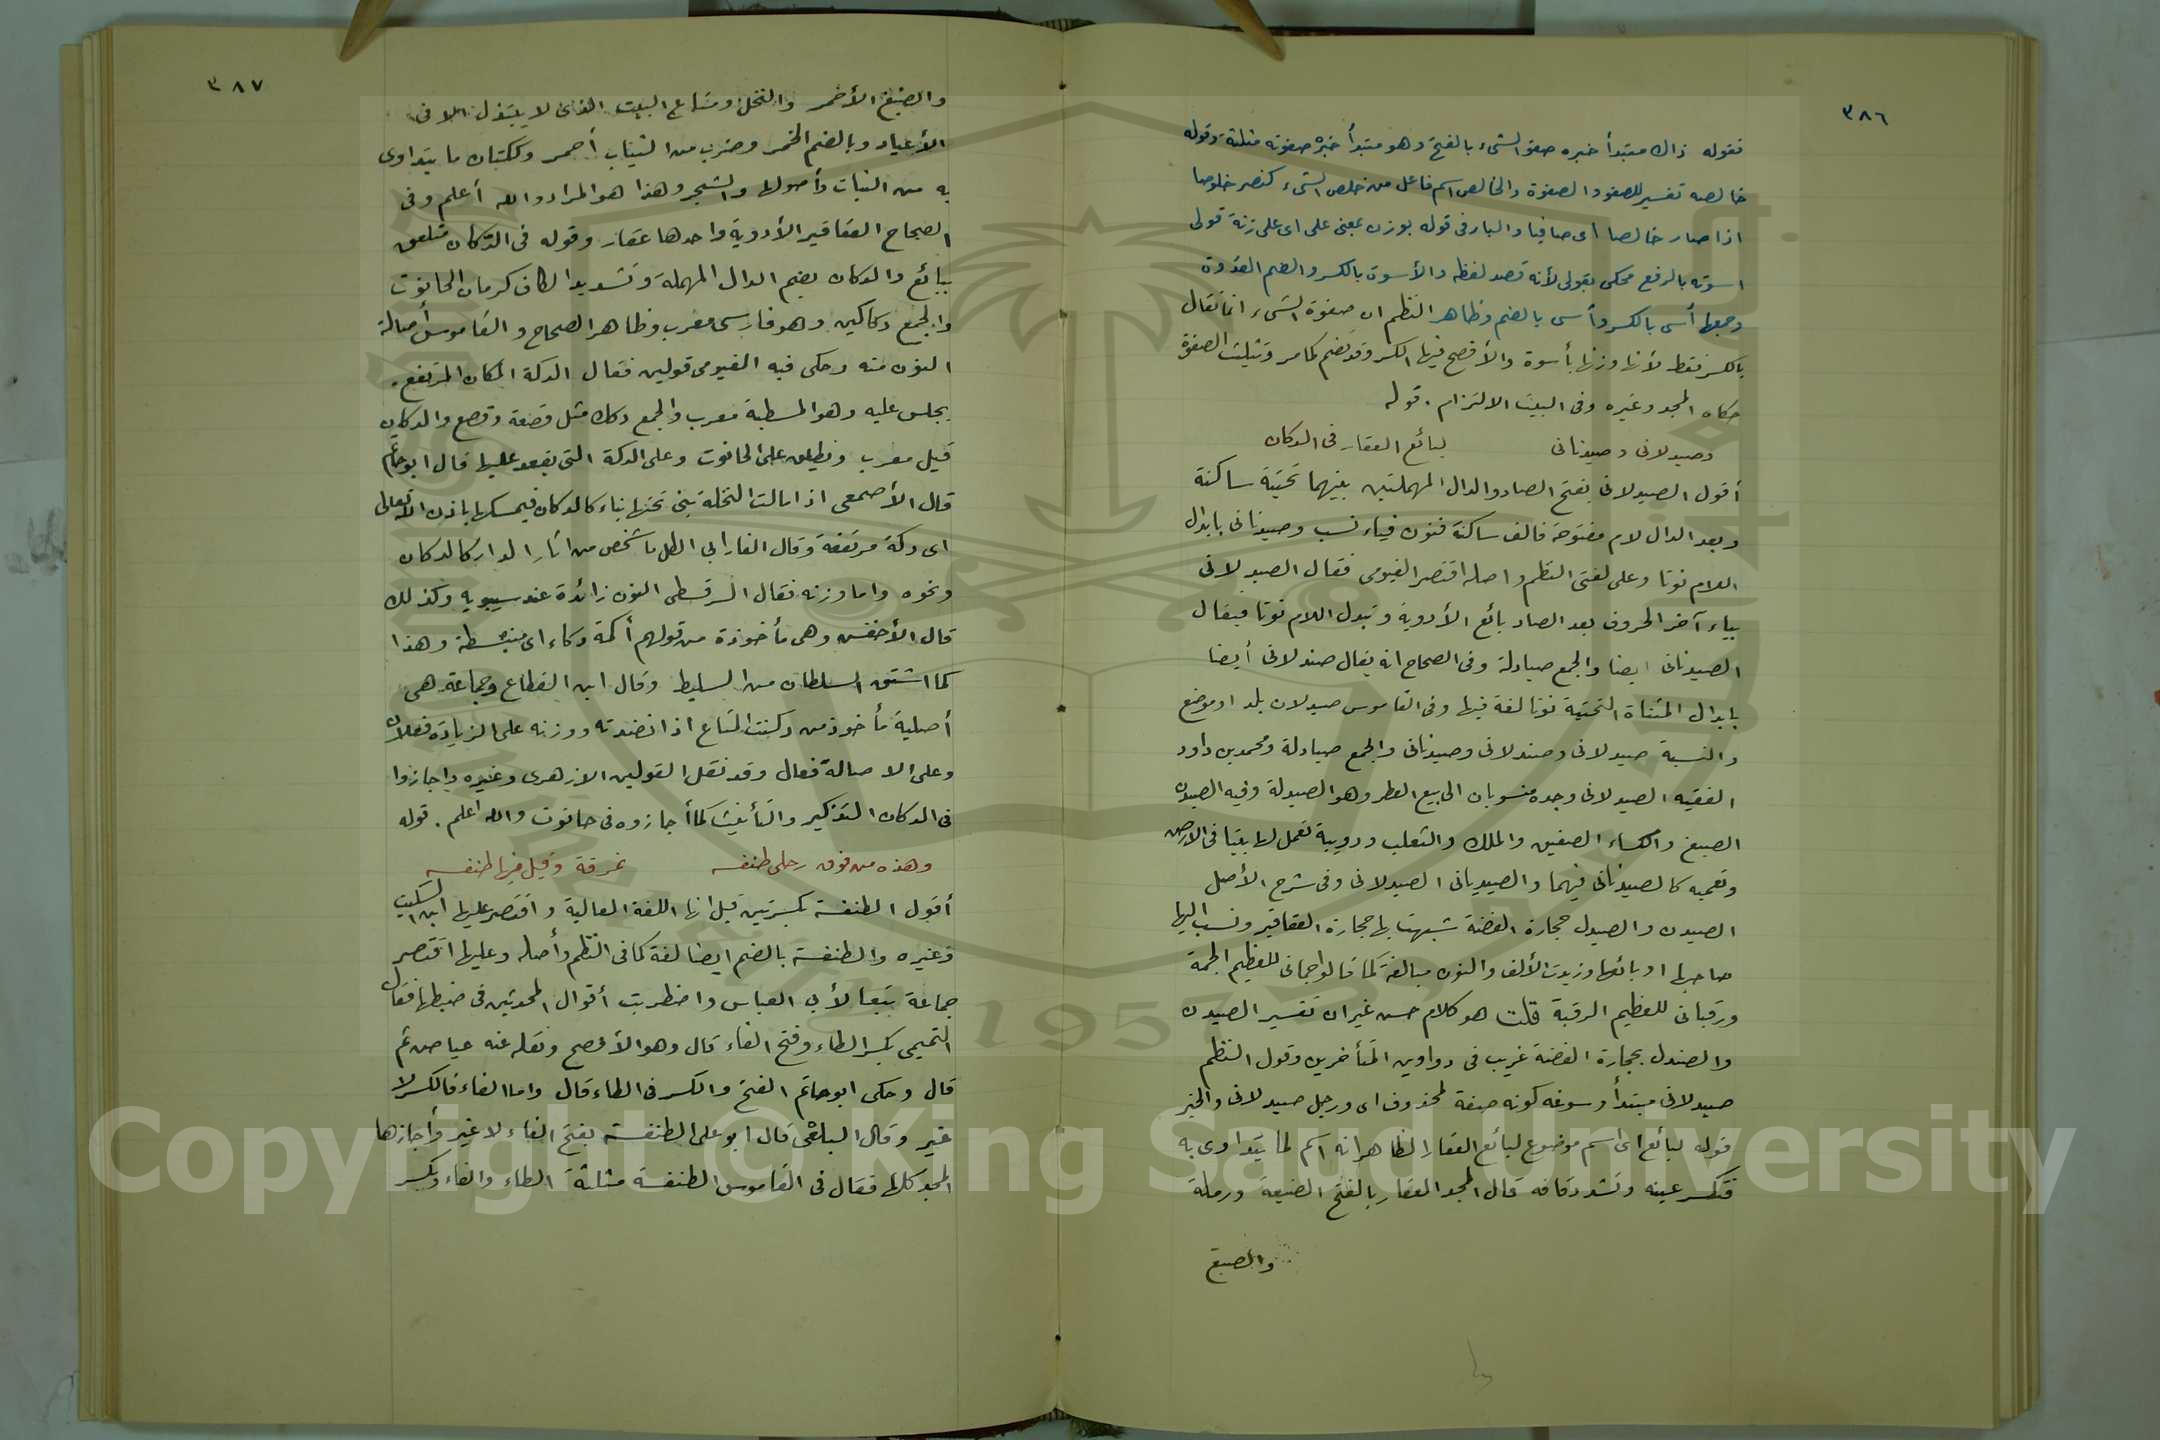 ٣٨٦
فقوله ذاك مبتدأ خبره صفو الشىء بالفتح وهو مبتدأ خبره صفوته مثلثة وقوله
خالصه تفسير للصفو والصفوة والخالص اسم فاعل من خلص الشىء كنصر خلوصا
اذا صار خالصا اى صافيا والبار فى قوله بوزن بمعنى على اى على زنة قولى
اسوته بالرفع محكى بقولى لأنه قصد لفظه والأسوة بالكسر والضم القدوة
وجمعها أسى بالكسر وأسى بالضم وظاهر النظم ان صفوة الشىء انما تقال
بالكسر فقط لأنها وزنها بأسوة والأفصح فيها الكسر وقد تضم كما مر وتثليث الصفوة
حكاه المجد وغيره وفى البيت الالتزام . قوله
وصيدلانى وصيدنانى لبائع العقار فى الدكان
أقول الصيدلانى بفتح الصاد والدال المهملتين بينهما تحتية ساكنة
وبعد الدال لام مفتوحة فالف ساكنة فنون فياء نسب وصيدنانى بابدال
اللام نونا وعلى لغتى النظم واصله اقتصر الفيومى فقال الصيدلانى
بياء آخر الحروف بعد الصاد بائع الأدوية وتبدل اللام نونا فيقال
الصيدنانى ايضا والجمع صيادلة وفى الصحاح انه يقال صندلانى أيضا
بابدال المثناة التحتية نونا لغة فيها وفى القاموس صيدلان بلد او موضع
والنسبة صيدلانى وصندلانى وصيدنانى والجمع صيادلة ومحمد بن داود
الفقيه الصيدلانى وجده منسوبان الى بيع العطر وهو الصيدلة وفيه الصيدن
الضبع والكساء الصفيق والملك والثعلب ودويبة تعمل لها بيتا فى الارض
وتعميه كالصيدنانى فيهما والصيدنانى الصيدلانى وفى شرح الأصل
الصيدن والصيدل حجارة الفضة شبهت بها حجارة العقاقير ونسب اليها
صاحبها او بائعها وزيدت الألف والنون مبالغة كما قالوا جمانى للعظيم الجمة
ورقبانى للعظيم الرقبة قلت هو كلام حسن غير ان تفسير الصيدن
والصندل بحجارة الفضة غريب فى دواوين المتأخرين وقول النظم
صيدلانى مبتدأ وسوغه كونه صفة لمحذوف اى ورجل صيدلانى والخبر
قوله لبائع اى اسم موضوع لبائع العقار الظاهر انه اسم لما يتداوى به
فتكسر عينه وتشدد قافه قال المجد العقار بالفتح الضيعة ورملة
والصبغ
٣٨٧
والصبغ الأحمر والنخل ومتاع البيت الذى لا يبتذل الا فى
الأعياد وبالضم الخمر وضرب من الثياب أحمر وككتان ما يتداوى
به من النبات وأصولها والشجر وهذا هو المراد والله أعلم وفى
الصحاح العقاقير الأدوية واحدها عقار وقوله فى الدكان متعلق
ببائع والدكان بضم الدال المهملة وتشديد الكاف كرمان الحانوت
والجمع دكاكين وهو فارسى معرب وظاهر الصحاح والقاموس أصالة
النون منه وحكى فيه الفيومى قولين فقال الدكة المكان المرتفع .
يجلس عليه وهو المسطبة معرب والجمع دكك مثل قصعة وقصع والدكان
قيل معرب ويطلق على الحانوت وعلى الدكة التى يقعد عليها قال ابو حاتم
قال الأصمعى اذا مالت النخلة بنى تحتها بناء كالدكان فيمسكها باذن الله تعالى
اى دكة مرتفعة وقال الفارابى الطلل ما شخص من اثار الدار كالدكان
ونحوه واما وزنه فقال السرقسطى النون زائدة عند سيبويه وكذلك
قال الأخفش وهى مأخوذة من قولهم أكمة دكاء اى منبسطة وهذا
كما اشتق السلطان من السليط وقال ابن القطاع وجماعة هى
أصلية مأخوذ من دكنت المتاع اذا نضدته ووزنه على الزيادة فعلان
وعلى الاصالة فعال وقد نقل القولين الازهرى وغيره واجازوا
فى الدكان التذكير والتأنيث كما أجازوه فى حانوت والله اعلم . قوله
وهذه من فوق رحلى طنفسه غرقة وقيل فيها طنفسه
أقول الطنفسة بكسرتين قيل انها اللغة العالية واقتصر عليها ابن السكيت
وغيره والطنفسة بالضم ايضا لغة كما فى النظم وأصله وعليها اقتصر
جماعة تبعا لأبى العباس واضطربت أقوال المحدثين فى ضبطها فقال
التميمى بكسر الطاء وفتح الفاء قال وهو الأفصح ونقله عنه عياض ثم
قال وحكى ابو حاتم الفتح والكسر فى الطاء قال واما الفاء فالكسر لا
غير وقال الباقى قال ابو على الطنفسة بفتح الفاء لا غير وأجازها
المجد كلها فقال فى القاموس الطنفسة مثلثة الطاء والفاء وبكسر
Copyright © King Saud University
1957